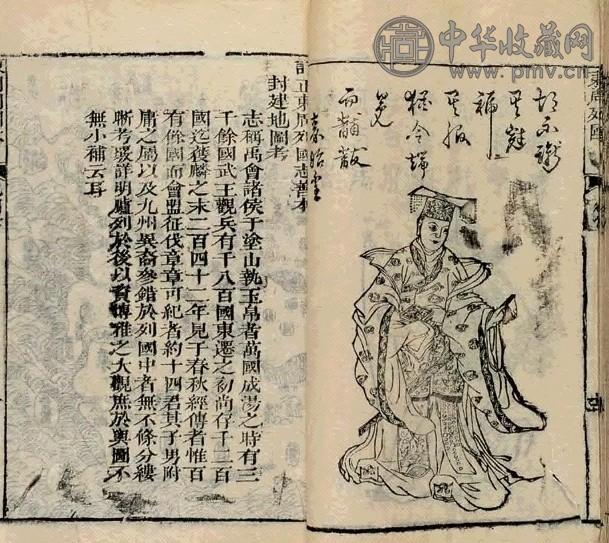 中华收藏网
www.pmv.cn
東周列國
而黼黻
秦始皇
訂正東周列國志善本
封建地圖考
志稱禹會諸侯于塗山執玉帛者萬國成湯之時有三
千餘國武王觀兵有千八百國東遷之初尚存千二百
國迄獲麟之末二百四十二年見于春秋經傳者惟百
有餘國而會盟征伐章章可紀者約十四君其子男附
庸之屬以及九州異裔參錯於列國中者無不條分縷
晰考覈詳明臚列於後以資博雅之大觀庶於輿圖不
無小補云耳